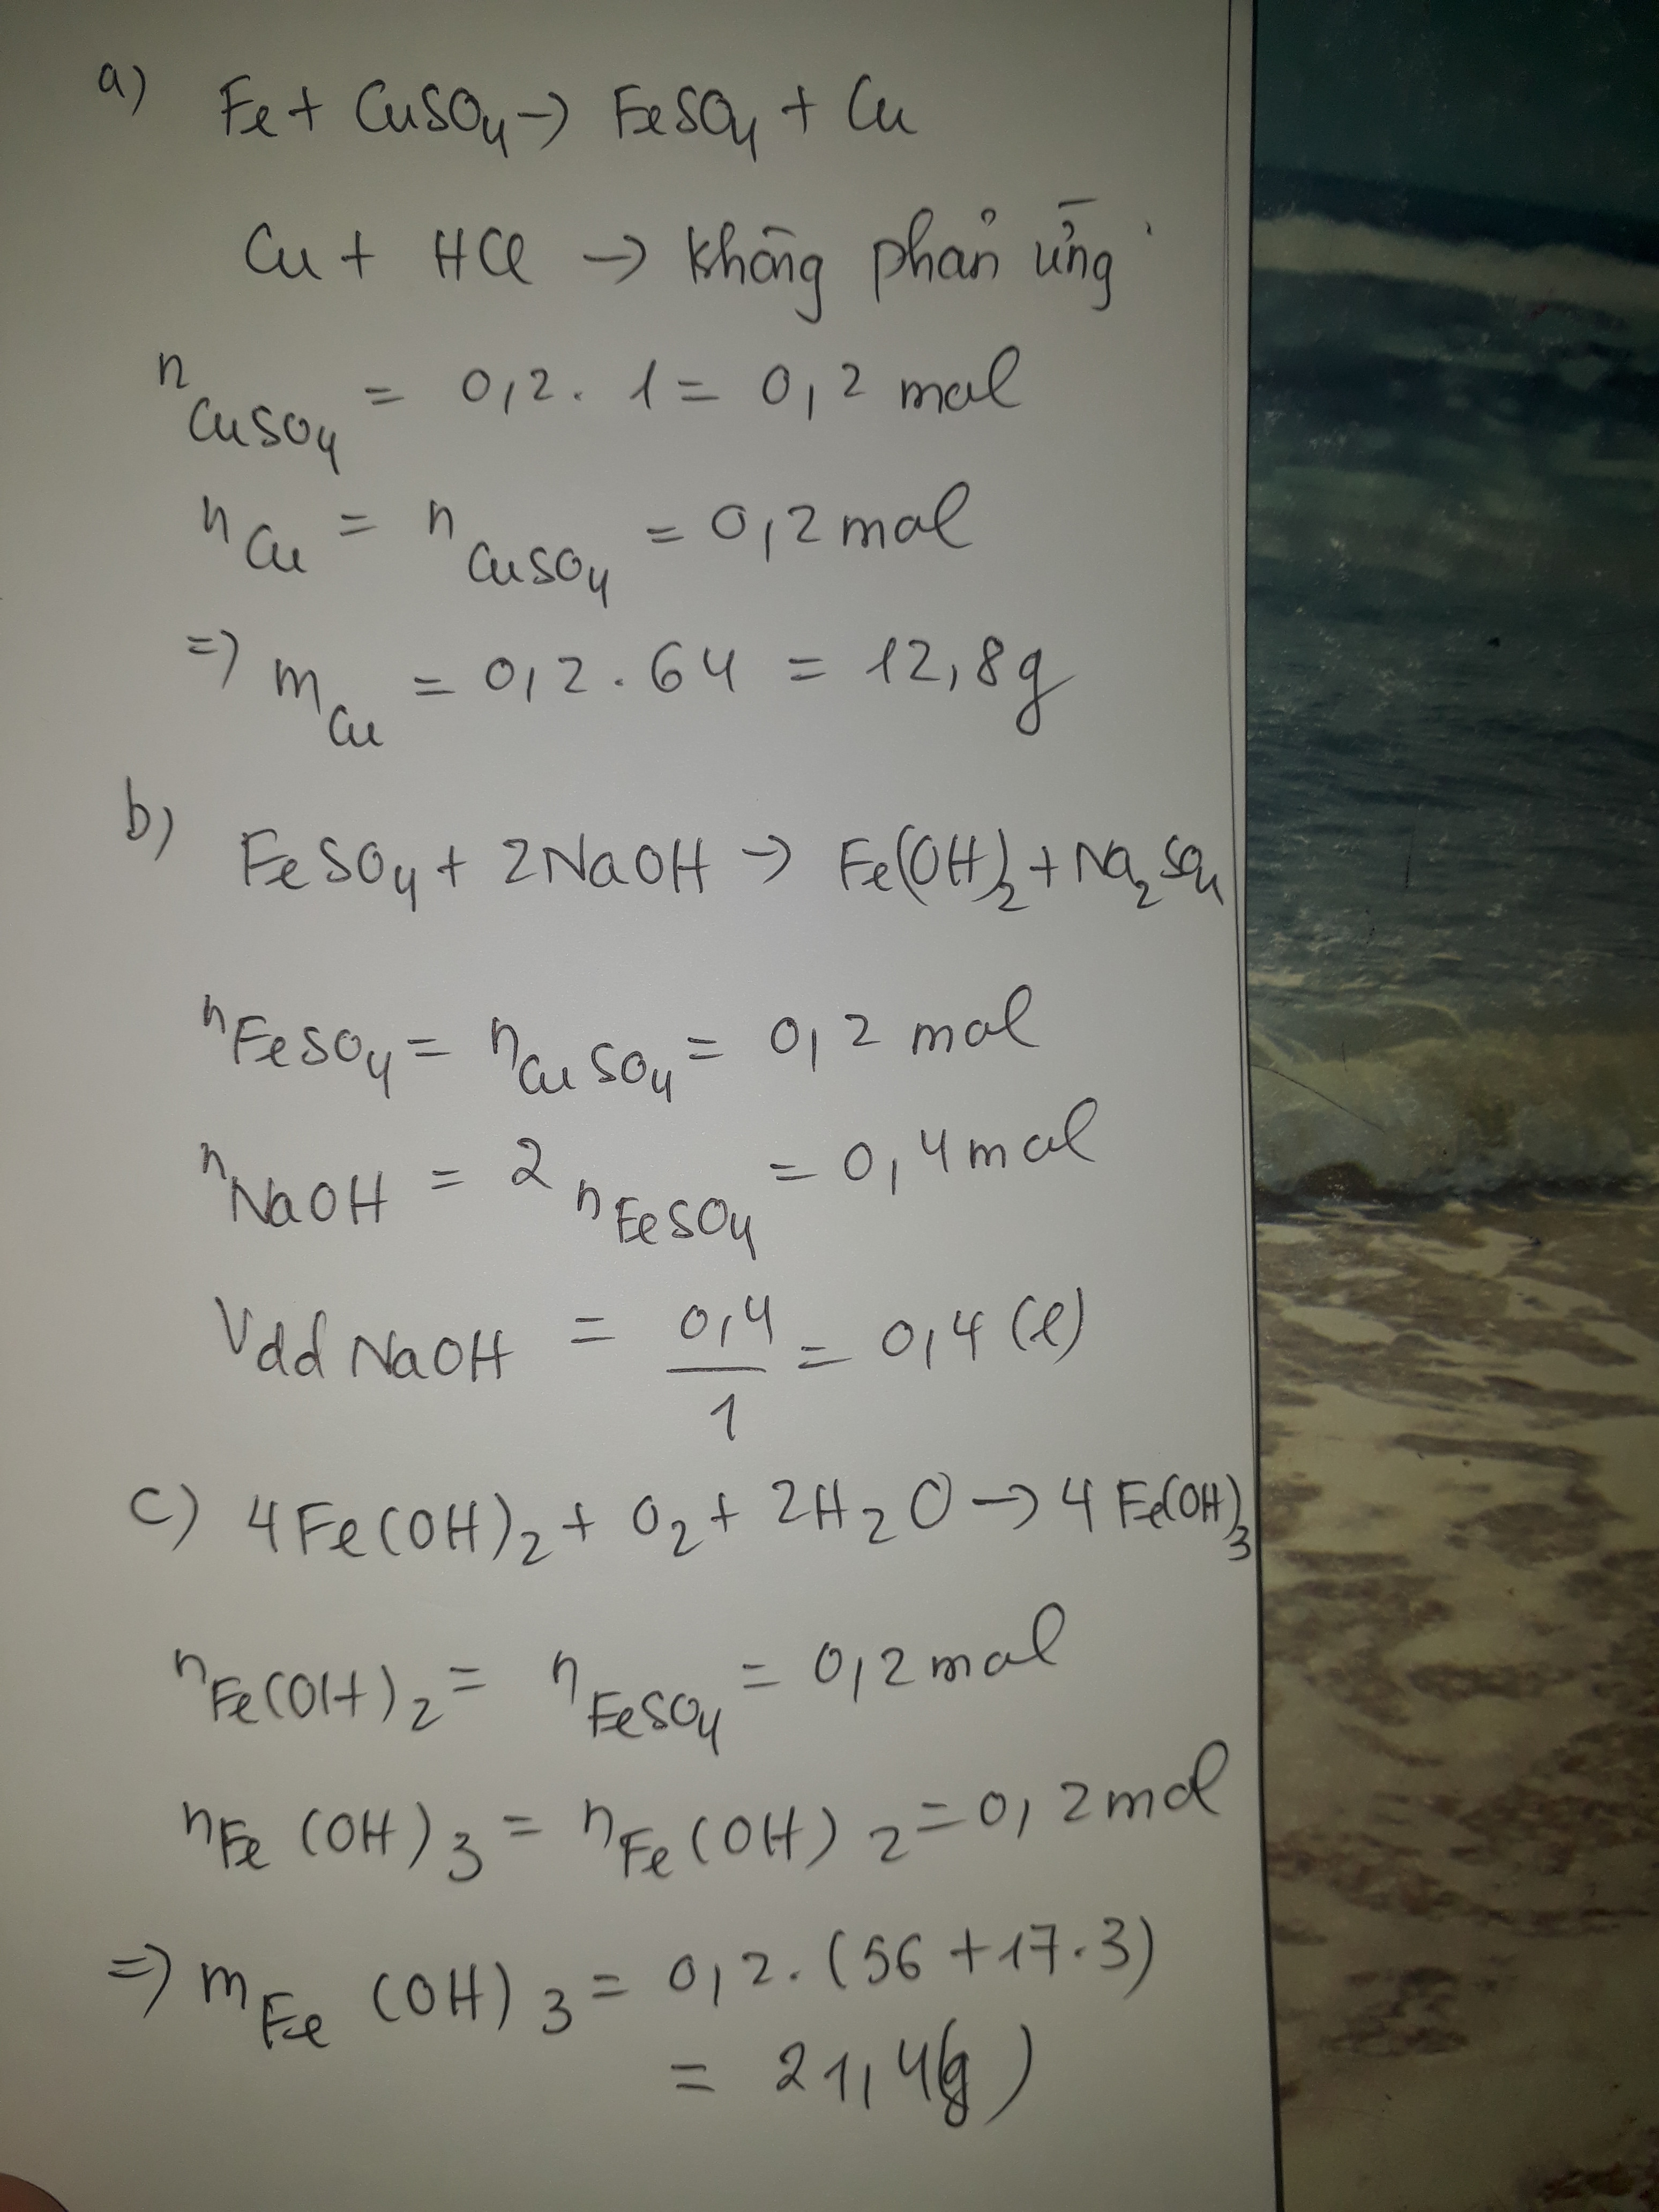 a) Fe + CuSO₄ → FeSO₄ + Cu
Cu + HCl → không phản ứng
n CuSO₄ = 0,2 . 1 = 0,2 mol
n Cu = n CuSO₄ = 0,2 mol
=> m Cu = 0,2 . 64 = 12,8g
b) FeSO₄ + 2NaOH → Fe(OH)₂ + Na₂SO₄
n FeSO₄ = n CuSO₄ = 0,2 mol
n NaOH = 2 n FeSO₄ = 0,4 mol
Vdd NaOH = 0,4/1 = 0,4 (l)
c) 4Fe(OH)₂ + O₂ + 2H₂O → 4Fe(OH)₃
n Fe(OH)₂ = n FeSO₄ = 0,2 mol
n Fe(OH)₃ = n Fe(OH)₂ = 0,2 mol
=> m Fe(OH)₃ = 0,2 . (56 + 17 . 3)
= 21,4(g)